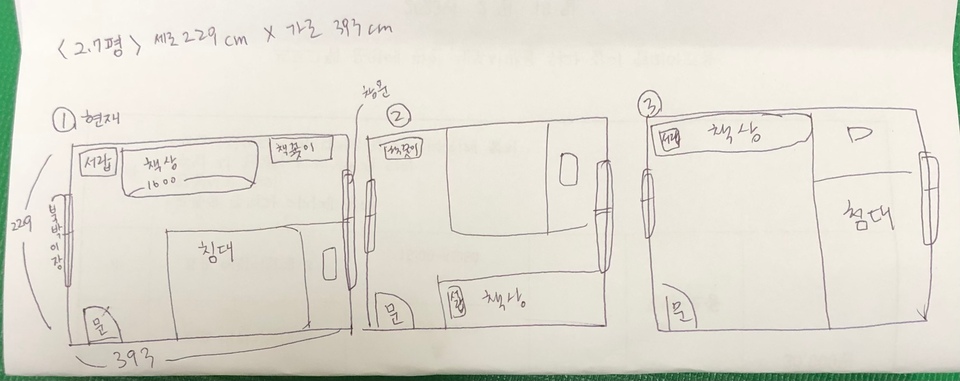 <2.7평> 세로 229 cm X 가로 393 cm
① 현재
창문
②
③
서랍
책상
1600
책꽂이
229
붙박이장
침대
문
393
책꽂이
서랍
책상
문
서랍
책상
침대
문